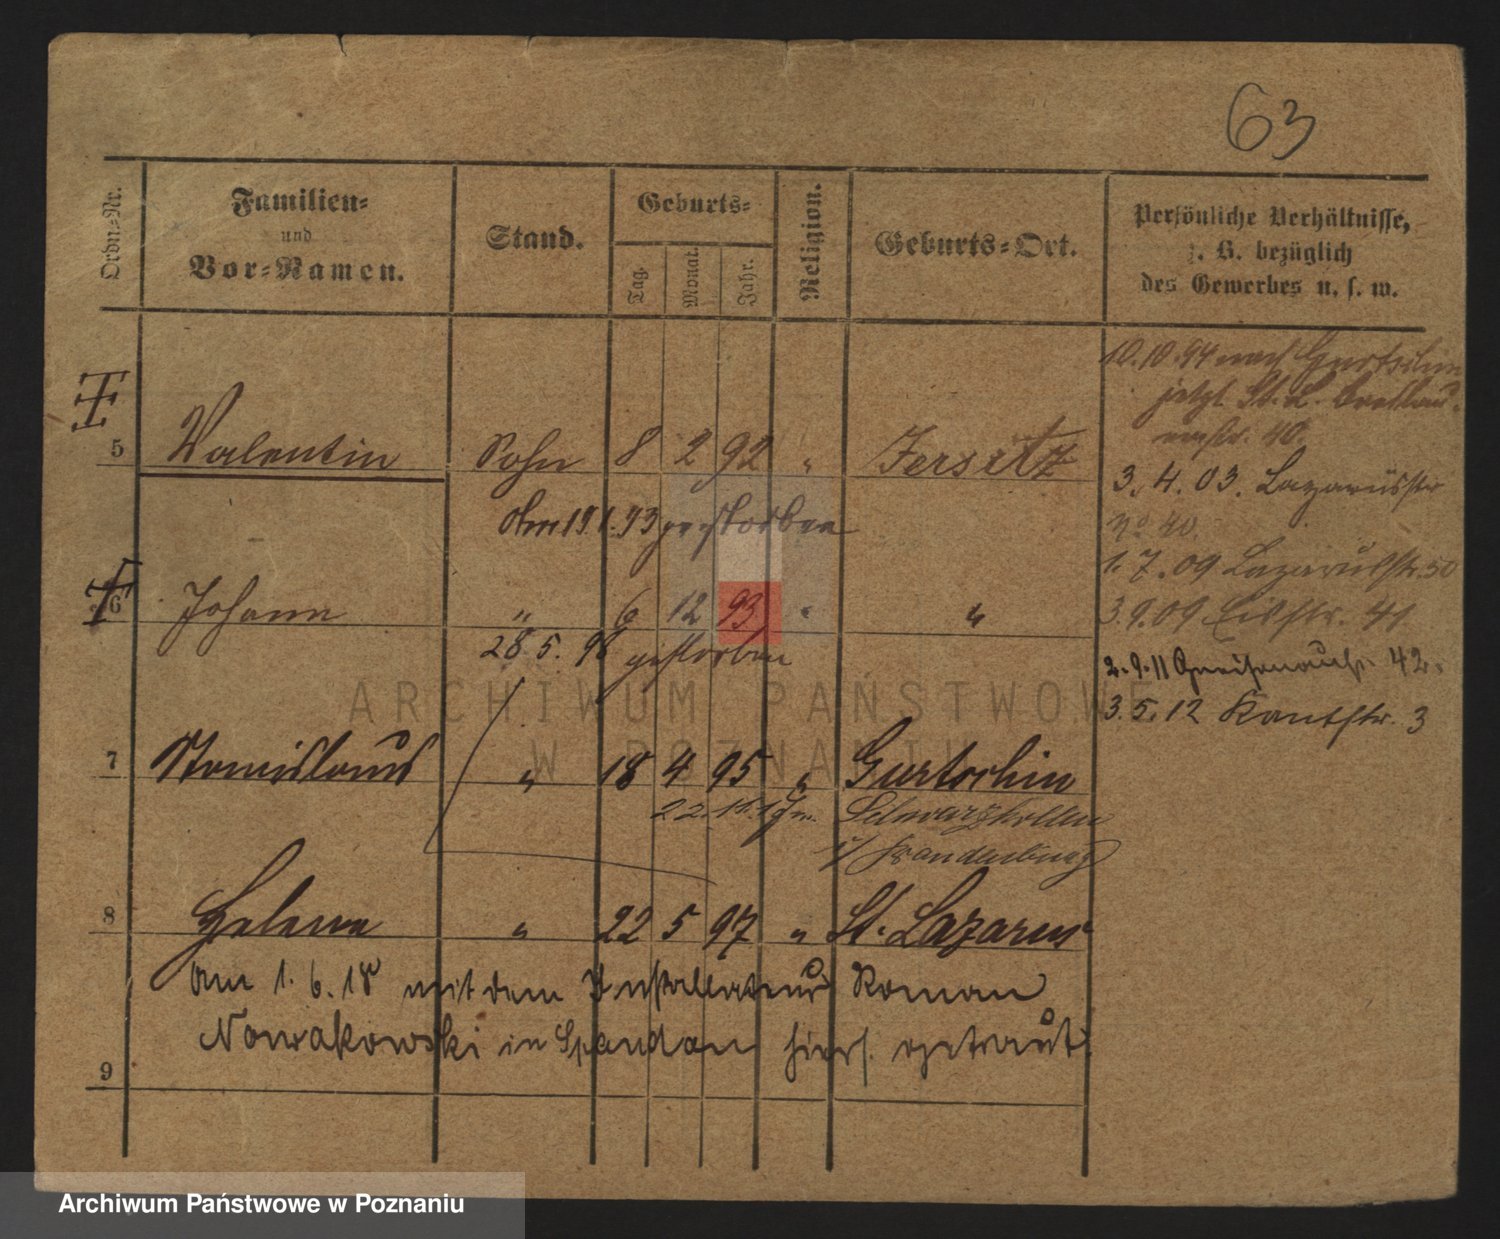 63
Ordn.-Nr.
Familien-
und
Vor-Namen.
Stand.
Geburts-
Tag.
Monat.
Jahr.
Religion.
Geburts-Ort.
Persönliche Verhältnisse,
z. B. bezüglich
des Gewerbes u. s. w.
10.10.94 nach Gurtschin
jetzt St. L.
40.
5 Valentin Sohn 8 2 92 " Jersitz
3. 4. 03. Lazarusstr
No 40.
Am 19.1.93 gestorben
1. 7. 09 Lazarusstr. 50
6 Johann " 6 12 93 " "
3.9.09 Eisstr. 41
28. 5. 98 gestorben
2. 9. 11 Gneisenaustr 42.
3. 5. 12 Kantstr. 3
7 Stanislaus " 18 4 95 " Gurtschin
22. 11. 17 n. Schwarzkollen
i/ Brandenburg
8 Helene " 22 5 97 " St. Lazarus
Am 1. 6. 18 mit dem Installateur Roman
Nowakowski in Spandau hiers. getraut.
9
ARCHIWUM PAŃSTWOWE
W POZNANIU
Archiwum Państwowe w Poznaniu